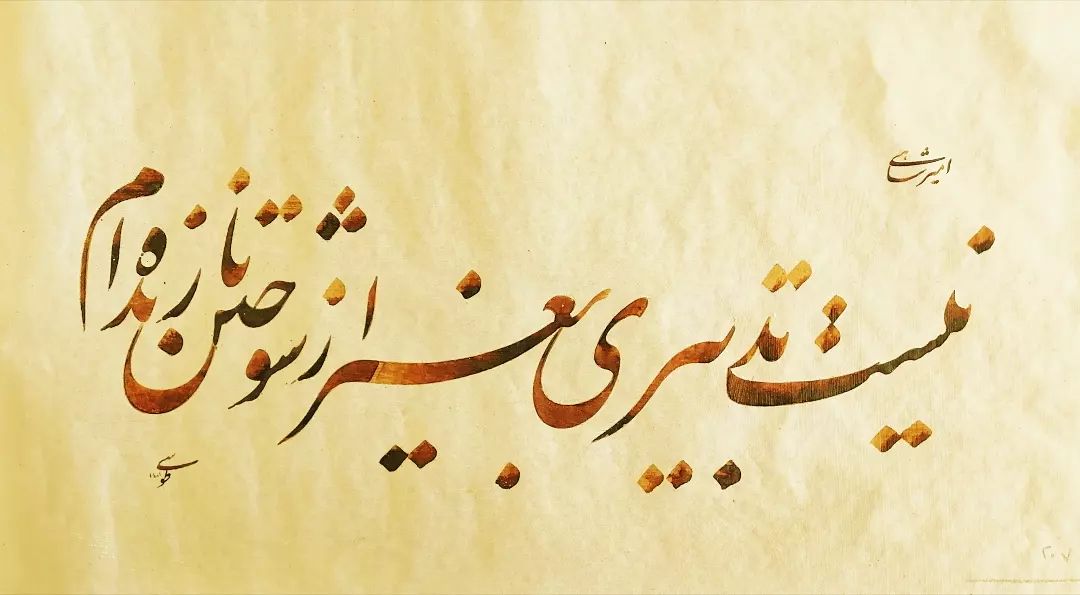 امیر شاهی
نیست تدبیری بغیر از سوختن تا زنده ام
طوسی
۲۰۷